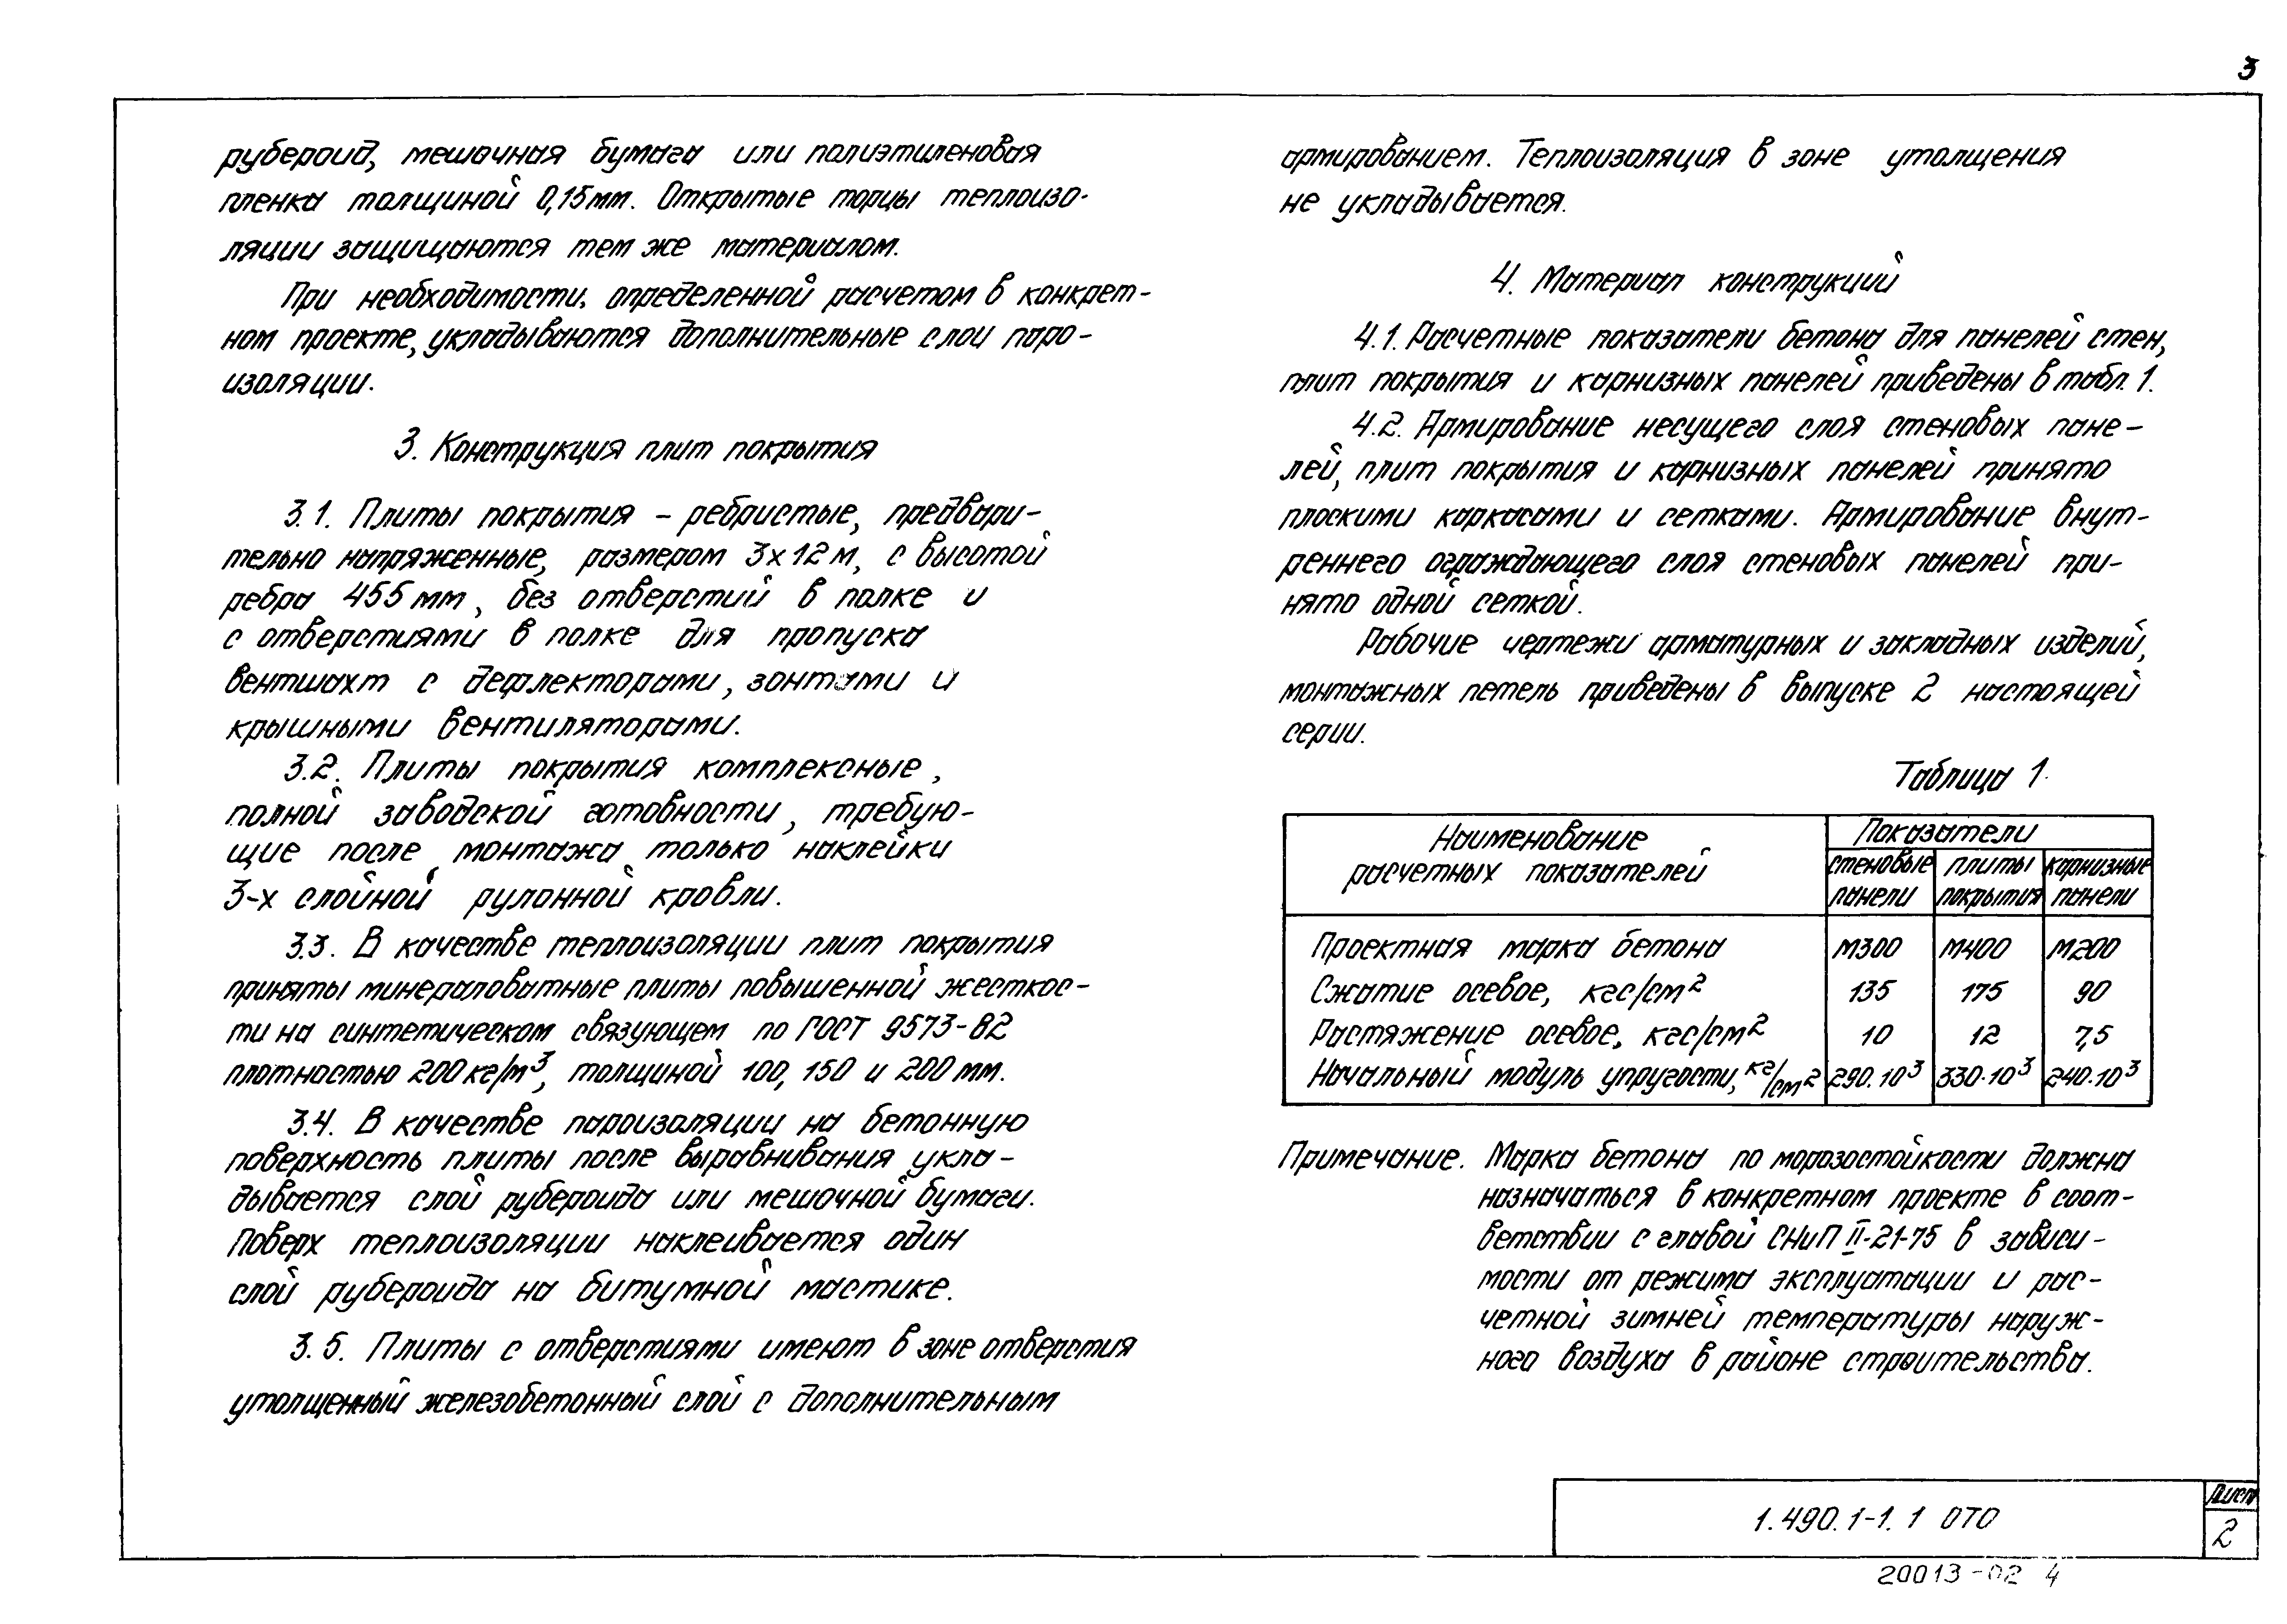 3
рубероид, мешочная бумага или полиэтиленовая
пленка толщиной 0,15мм. Открытые торцы теплоизо-
ляции защищаются тем же материалом.
При необходимости, определенной расчетом в конкрет-
ном проекте, укладываются дополнительные слои паро-
изоляции.
3. Конструкция плит покрытия
3.1. Плиты покрытия – ребристые, предвари-
тельно напряженные, размером 3х12м, с высотой
ребра 455мм, без отверстий в полке и
с отверстиями в полке для пропуска
вентшахт с дефлекторами, зонтами и
крышными вентиляторами.
3.2. Плиты покрытия комплексные,
полной заводской готовности, требую-
щие после монтажа только наклейки
3-х слойной рулонной кровли.
3.3. В качестве теплоизоляции плит покрытия
приняты минераловатные плиты повышенной жесткос-
ти на синтетическом связующем по ГОСТ 9573-82
плотностью 200кг/м³, толщиной 100, 150 и 200мм.
3.4. В качестве пароизоляции на бетонную
поверхность плиты после выравнивания укла-
дывается слой рубероида или мешочной бумаги.
Поверх теплоизоляции наклеивается один
слой рубероида на битумной мастике.
3.5. Плиты с отверстиями имеют в зоне отверстия
утолщенный железобетонный слой с дополнительным
армированием. Теплоизоляция в зоне утолщения
не укладывается.
4. Материал конструкций
4.1. Расчетные показатели бетона для панелей стен,
плит покрытия и карнизных панелей приведены в табл. 1.
4.2. Армирование несущего слоя стеновых пане-
лей, плит покрытия и карнизных панелей принято
плоскими каркасами и сетками. Армирование внут-
реннего ограждающего слоя стеновых панелей при-
нято одной сеткой.
Рабочие чертежи арматурных и закладных изделий,
монтажных петель приведены в выпуске 2 настоящей
серии.
Таблица 1.
Наименование расчетных показателей
Показатели
стеновые панели плиты покрытия карнизные панели
Проектная марка бетона М300 М400 М200
Сжатие осевое, кгс/см² 135 175 90
Растяжение осевое, кгс/см² 10 12 7,5
Начальный модуль упругости, кг/см² 290·10³ 330·10³ 240·10³
Примечание. Марка бетона по морозостойкости должна
назначаться в конкретном проекте в соот-
ветствии с главой СНиП II-21-75 в зависи-
мости от режима эксплуатации и рас-
четной зимней температуры наруж-
ного воздуха в районе строительства.
1.490.1-1.1 ОТО
Лист
2
20013-02 4